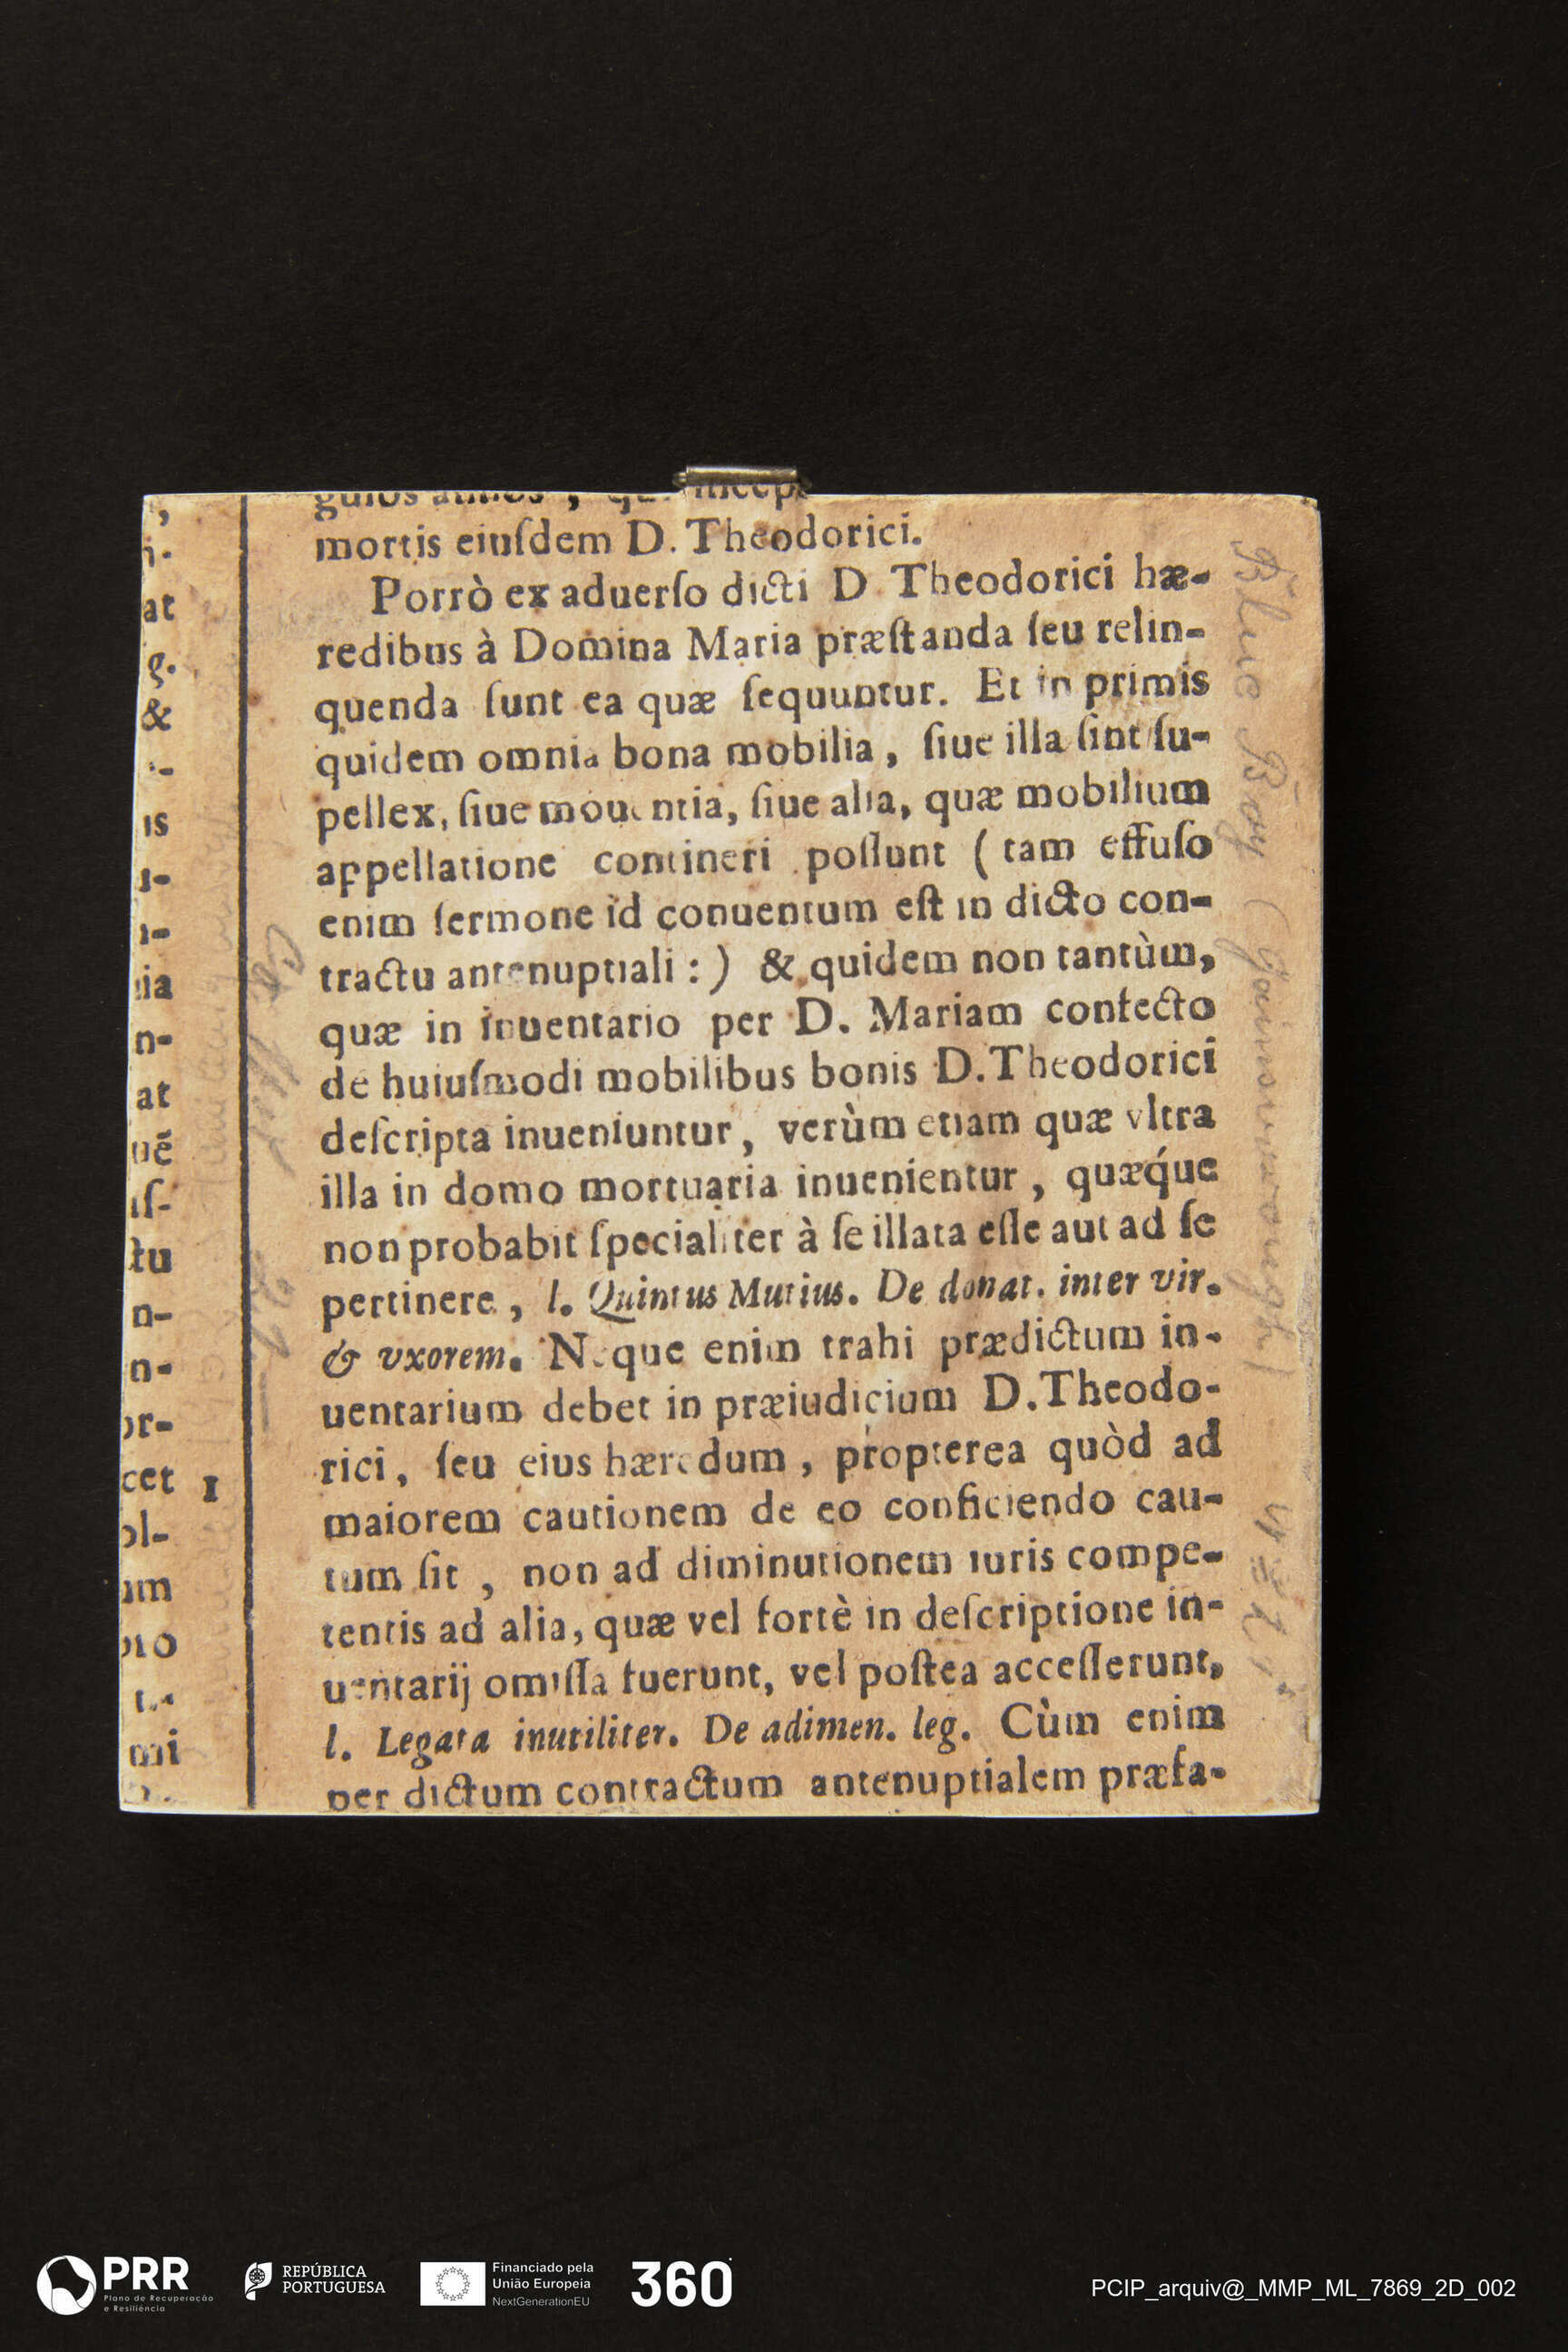 mortis eiuſdem D. Theodorici.
Porrò ex aduerſo dicti D Theodorici hæ-
redibus à Domina Maria præſtanda ſeu relin-
quenda ſunt ea quæ ſequuntur. Et in primis
quidem omnia bona mobilia, ſiue illa ſint ſu-
pellex, ſiue mouentia, ſiue alia, quæ mobilium
appellatione contineri poſſunt (tam effuſo
enim ſermone id conuentum eſt in dicto con-
tractu antenuptiali:) & quidem non tantùm,
quæ in inuentario per D. Mariam confecto
de huiuſmodi mobilibus bonis D. Theodorici
deſcripta inueniuntur, verùm etiam quæ vltra
illa in domo mortuaria inuenientur, quæq́ue
non probabit ſpecialiter à ſe illata eſſe aut ad ſe
pertinere, l. Quintus Mutius. De donat. inter vir.
& vxorem. Neque enim trahi prædictum in-
uentarium debet in præiudicium D. Theodo-
rici, ſeu eius hæredum, propterea quòd ad
maiorem cautionem de eo conficiendo cau-
tum ſit, non ad diminutionem iuris compe-
tentis ad alia, quæ vel fortè in deſcriptione in-
uentarij omiſſa fuerunt, vel poſtea acceſſerunt,
l. Legata inutiliter. De adimen. leg. Cùm enim
per dictum contractum antenuptialem præfa-
at
g.
&
is
n-
at
uē
iſ-
tu
n-
n-
or-
cet 1
ol-
um
mi
Blue Boy (Gainsborough)
PRR
Plano de Recuperação
e Resiliência
REPÚBLICA
PORTUGUESA
Financiado pela
União Europeia
NextGenerationEU
360
PCIP_arquiv@_MMP_ML_7869_2D_002